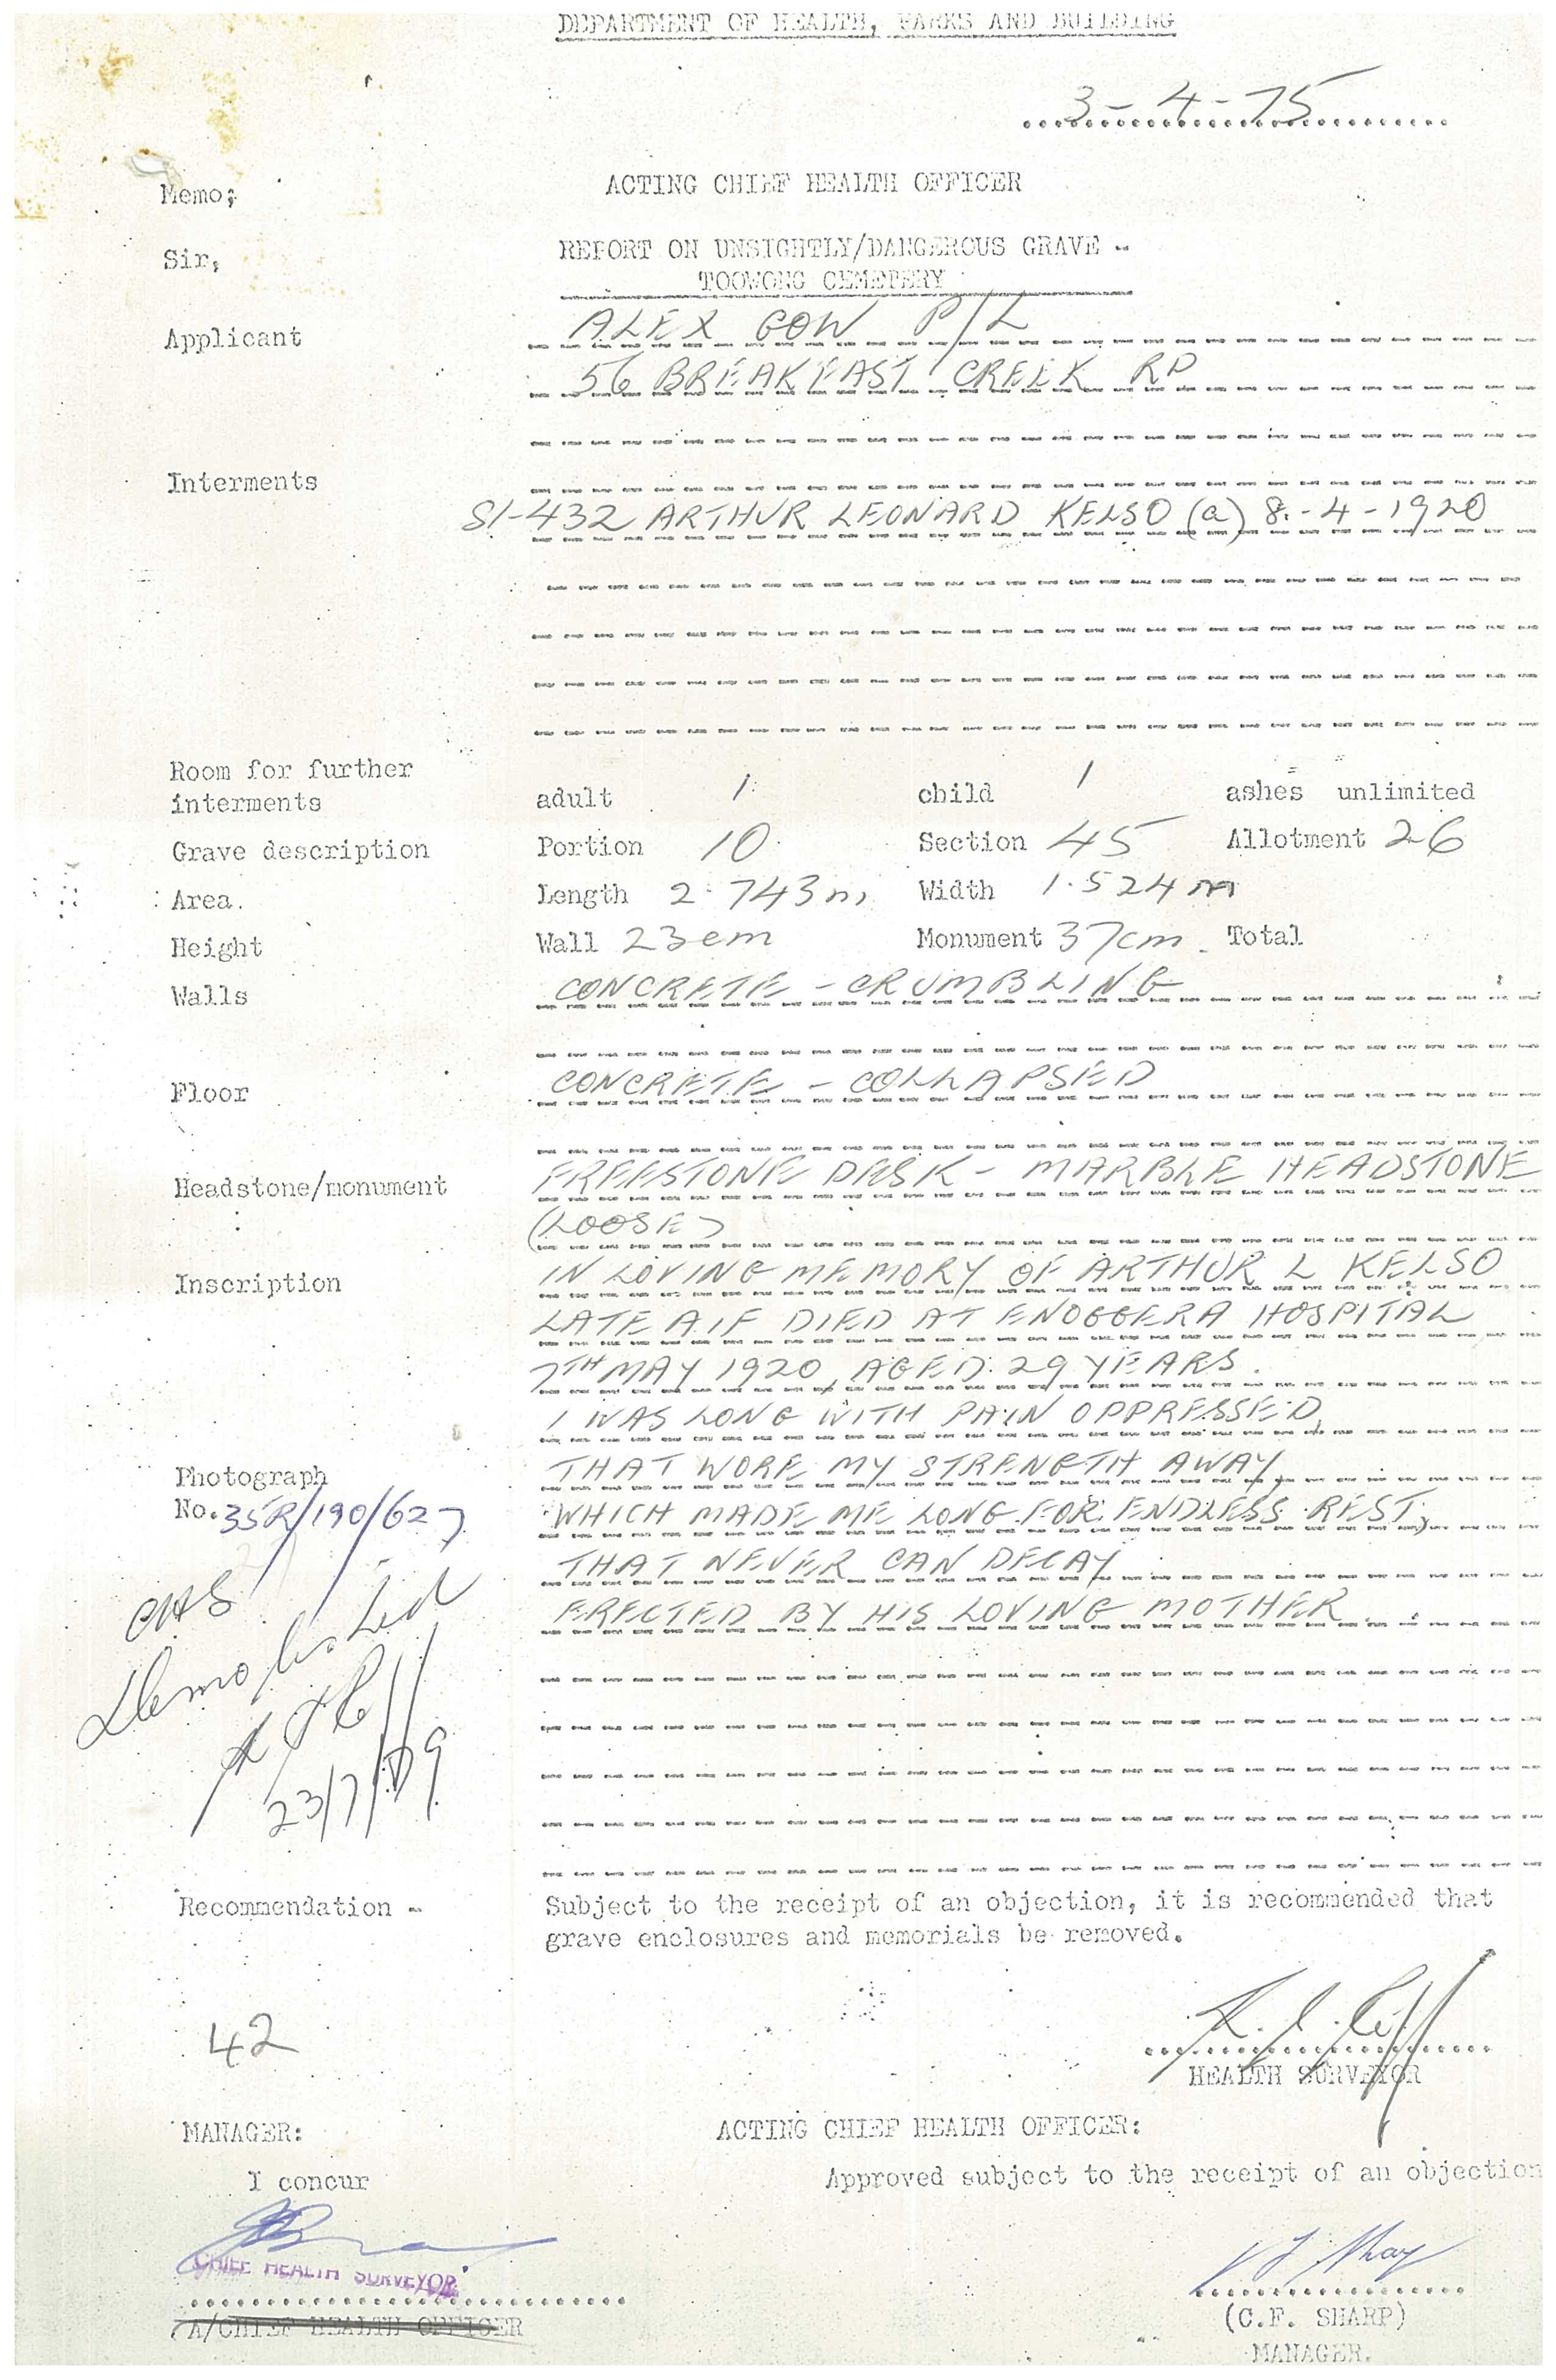 DEPARTMENT OF HEALTH, PARKS AND BUILDING
3-4-75
Memo; ACTING CHIEF HEALTH OFFICER
Sir, REPORT ON UNSIGHTLY/DANGEROUS GRAVE -
TOOWONG CEMETERY
Applicant ALEX GOW P/L
56 BREAKFAST CREEK RD
Interments
81-432 ARTHUR LEONARD KELSO (a) 8-4-1920
Room for further
interments adult 1 child 1 ashes unlimited
Grave description Portion 10 Section 45 Allotment 26
Area. Length 2.743m Width 1.524m
Height Wall 23cm Monument 37cm Total
Walls CONCRETE - CRUMBLING
Floor CONCRETE - COLLAPSED
Headstone/monument FREESTONE DESK - MARBLE HEADSTONE
(LOOSE)
Inscription IN LOVING MEMORY OF ARTHUR L KELSO
LATE AIF DIED AT ENOGGERA HOSPITAL
7TH MAY 1920, AGED 29 YEARS.
I WAS LONG WITH PAIN OPPRESSED,
Photograph THAT WORE MY STRENGTH AWAY,
No. 35R/190/627 WHICH MADE ME LONG FOR ENDLESS REST,
THAT NEVER CAN DECAY
CHS ERECTED BY HIS LOVING MOTHER.
Demolished
23/7/79
Recommendation - Subject to the receipt of an objection, it is recommended that
grave enclosures and memorials be removed.
42
HEALTH SURVEYOR
MANAGER: ACTING CHIEF HEALTH OFFICER:
I concur Approved subject to the receipt of an objection
CHIEF HEALTH SURVEYOR
A/CHIEF HEALTH OFFICER (C.F. SHARP)
MANAGER.